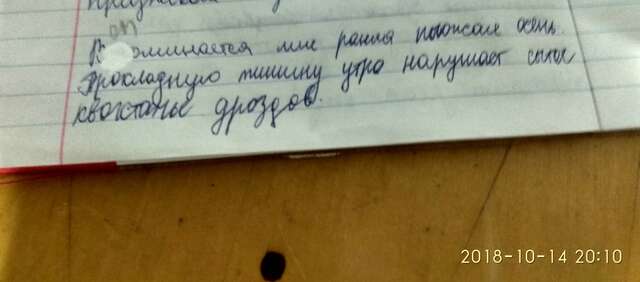 В оминается мне ранняя погожая осень.
Прохладную тишину утра нарушает сытое
квохтанье дроздов.
2018-10-14 20:10